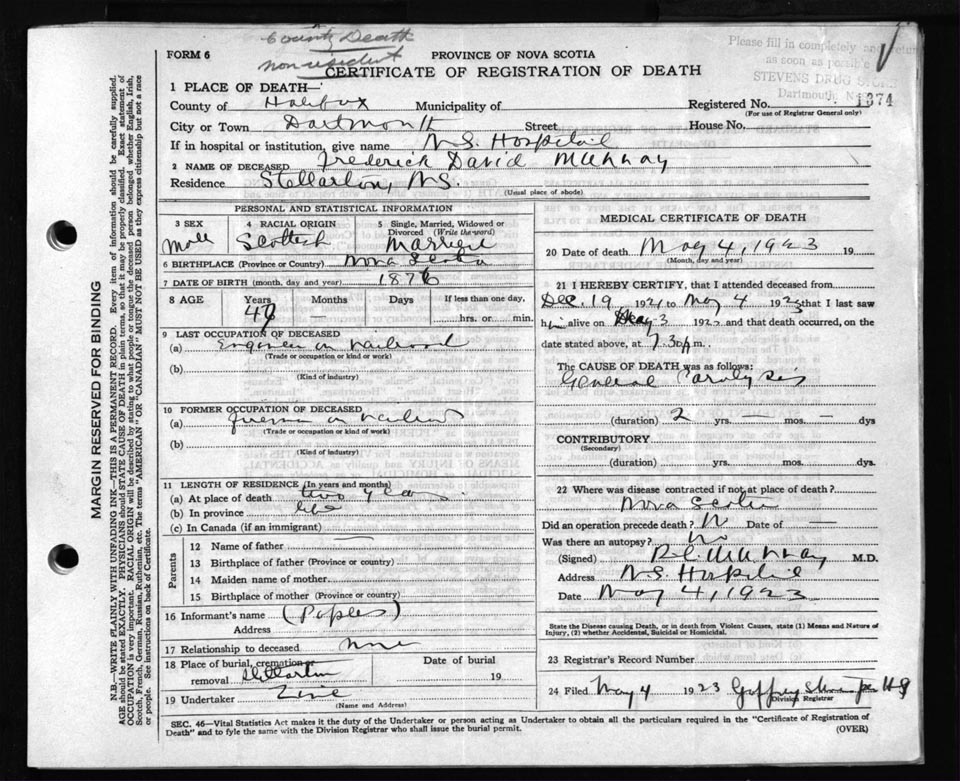 County Death
non resident
FORM 6
PROVINCE OF NOVA SCOTIA
CERTIFICATE OF REGISTRATION OF DEATH
Please fill in completely and return
as soon as possible
STEVENS DRUG STORE
Dartmouth, N.S.
1 PLACE OF DEATH—
County of Halifax Municipality of Registered No. 1374
(For use of Registrar General only)
City or Town Dartmouth Street House No.
If in hospital or institution, give name N.S. Hospital
2 NAME OF DECEASED Frederick David Murray
Residence Stellarton, N.S.
(Usual place of abode)
PERSONAL AND STATISTICAL INFORMATION
3 SEX Male
4 RACIAL ORIGIN Scottish
5 Single, Married, Widowed or Divorced (Write the word) Married
6 BIRTHPLACE (Province or Country) Nova Scotia
7 DATE OF BIRTH (month, day and year) 1876
8 AGE Years Months Days If less than one day,
— hrs. or min.
9 LAST OCCUPATION OF DECEASED
(a) Engineer on railroad
(Trade or occupation or kind or work)
(b)
(Kind of industry)
10 FORMER OCCUPATION OF DECEASED
(a) on
(Trade or occupation or kind of work)
(b)
(Kind of industry)
11 LENGTH OF RESIDENCE (In years and months)
(a) At place of death two years
(b) In province life
(c) In Canada (if an immigrant) —
Parents
12 Name of father
13 Birthplace of father (Province or country)
14 Maiden name of mother
15 Birthplace of mother (Province or country)
16 Informant's name (Papers)
Address
17 Relationship to deceased none
18 Place of burial, cremation or removal Stellarton Date of burial 19
19 Undertaker
(Name and Address)
MEDICAL CERTIFICATE OF DEATH
20 Date of death May 4, 1923 19
(Month, day and year)
21 I HEREBY CERTIFY, that I attended deceased from
Dec. 19 1921 to May 4 1923 that I last saw
him alive on May 3 192 and that death occurred, on
date stated above, at 7.30 p m.
The CAUSE OF DEATH was as follows:
General Paralysis
(duration) 2 yrs. — mos. dys
CONTRIBUTORY
(Secondary)
(duration) yrs. mos. dys.
22 Where was disease contracted if not at place of death?
Nova Scotia
Did an operation precede death? No Date of —
Was there an autopsy? No
(Signed) Murray M.D.
Address N.S. Hospital
Date May 4, 1923
State the Disease causing Death, or in death from Violent Causes, state (1) Means and Nature of
Injury, (2) whether Accidental, Suicidal or Homicidal.
23 Registrar's Record Number
24 Filed May 4 1923
Division Registrar
SEC. 46—Vital Statistics Act makes it the duty of the Undertaker or person acting as Undertaker to obtain all the particulars required in the "Certificate of Registration of
Death" and to fyle the same with the Division Registrar who shall issue the burial permit.
(OVER)
MARGIN RESERVED FOR BINDING
N.B.—WRITE PLAINLY WITH UNFADING INK—THIS IS A PERMANENT RECORD. Every item of information should be carefully supplied.
AGE should be stated EXACTLY. PHYSICIANS should STATE CAUSE OF DEATH in plain terms, so that it may be properly classified. Exact statement of
OCCUPATION is very important. RACIAL ORIGIN will be described by stating to what people or tongue the deceased person belonged whether English, Irish,
Scotch, French, German, Russian, Ruthenian, etc. The terms "AMERICAN" or "CANADIAN" MUST NOT BE USED as they express citizenship but not a race
or people. See instructions on back of Certificate.